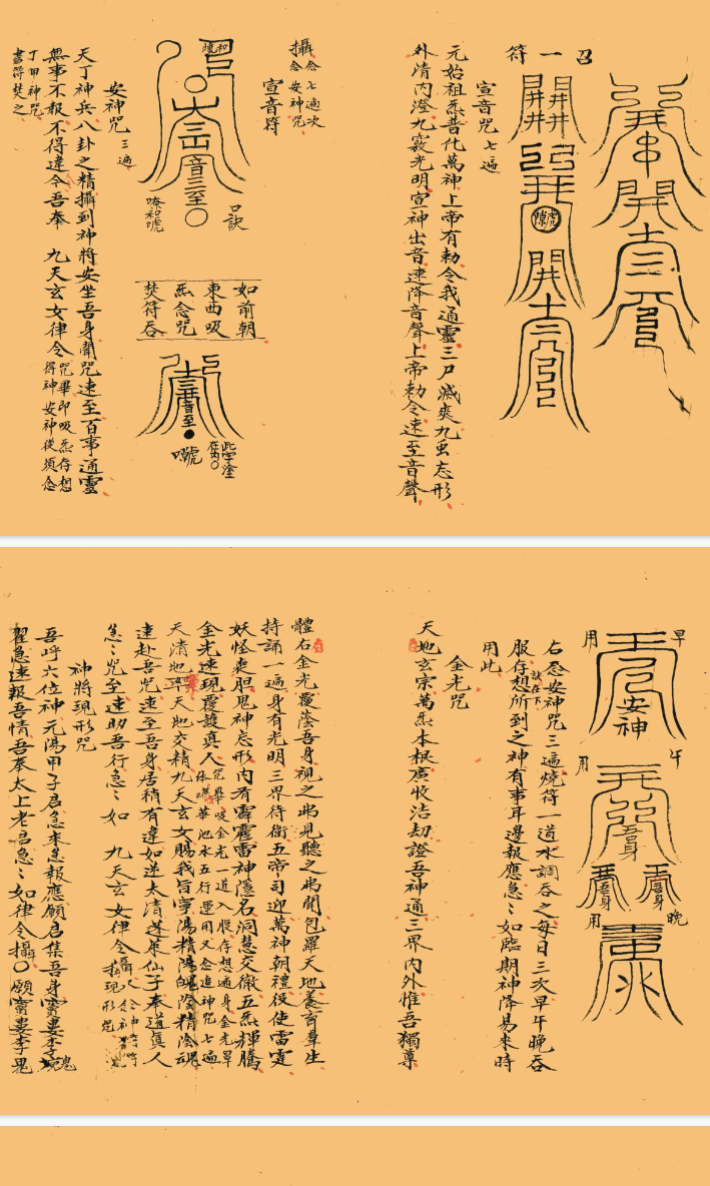 召一符
宣音咒 七遍
元始祖炁普化萬神上帝有勅令我通靈三尸滅爽九虫忘形
外清內澄九竅光明宣神出音速降音聲上帝勅令速至音聲
攝念七遍次念安神咒
宣音符
口訣
如前朝
東西吸
炁念咒
焚符吞
安神咒 三遍
天丁神兵八卦之精攝到神將安坐吾身聞咒速至百事通靈
無事不報不得違令吾奉 九天玄女律令咒畢即吸炁存想得神安神後須念
丁甲神咒書符焚之
早用
安神
午用
吾身
吾身
吾身
晚用
右念安神咒三遍燒符一道水調吞之每日三次早午晚吞
服存想所到之神有事耳邊報應急〻如臨期神降易來時
用此
金光咒
天地玄宗萬炁本根廣收浩劫證吾神通三界內外惟吾獨尊
體右金光覆蔭吾身視之弗見聽之弗聞包羅天地養育羣生
持誦一遍身有光明三界侍衛五帝司迎萬神朝禮役使雷霆
妖怪喪胆鬼神忘形內有霹靂雷神隱名洞慧交徹五炁輝騰
金光速現覆護真人咒畢吸金光一道入腹存想遍身金光罩華池水五行運用又念追神咒七遍
天清地天地交精九天玄女賜我旨寧陽精陽魄陰精陰魂
速赴吾咒速至吾身居稍有違如逆太清蓬萊仙子奉道真人
急〻咒子速助吾行急〻如 九天玄女律令攝
神將現形咒
吾呼六位神元陽甲子启急來急報應願启集吾身寶婁李
翟急速報吾情吾奉太上老君急〻如律令攝〇願寶婁李鬼